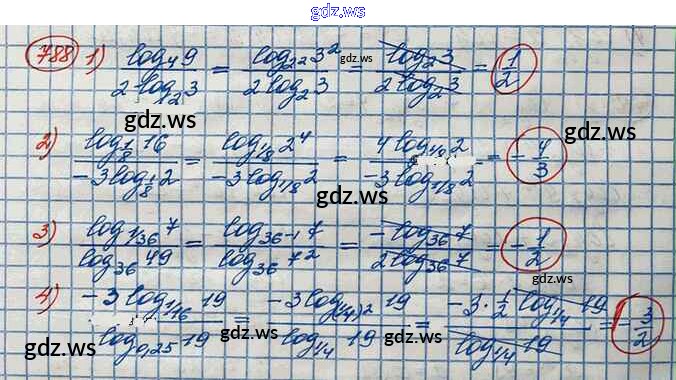 gdz.ws
788 1) log₄9 / 2log₂3 = log₂²3² / 2log₂3 = log₂3 / 2log₂3 = 1/2
gdz.ws
gdz.ws
2) log1/8 16 / -3log1/8 2 = log1/8 2⁴ / -3log1/8 2 = 4log1/8 2 / -3log1/8 2 = -4/3
gdz.ws
gdz.ws
3) log1/36 7 / log₃₆49 = log₃₆₋₁7 / log₃₆7² = -log₃₆7 / 2log₃₆7 = -1/2
gdz.ws
4) -3log1/16 19 / log0,25 19 = -3log(1/4)² 19 / log1/4 19 = -3·1/2 log1/4 19 / log1/4 19 = -3/2
gdz.ws
gdz.ws
gdz.ws